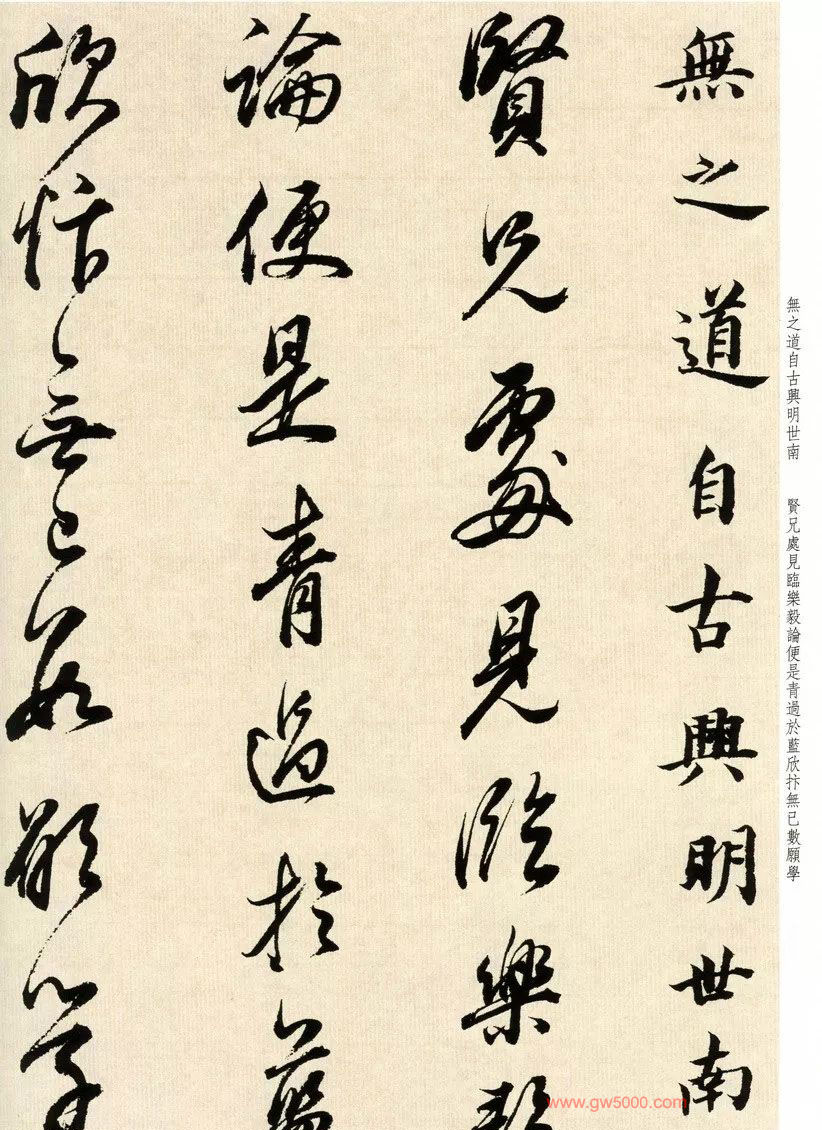 無之道自古興明世南
賢兄處見臨樂毅
論便是青過於藍
欣抃無已數願學
無之道自古興明世南
賢兄處見臨樂毅論便是青過於藍欣抃無已數願學
www.gw5000.com